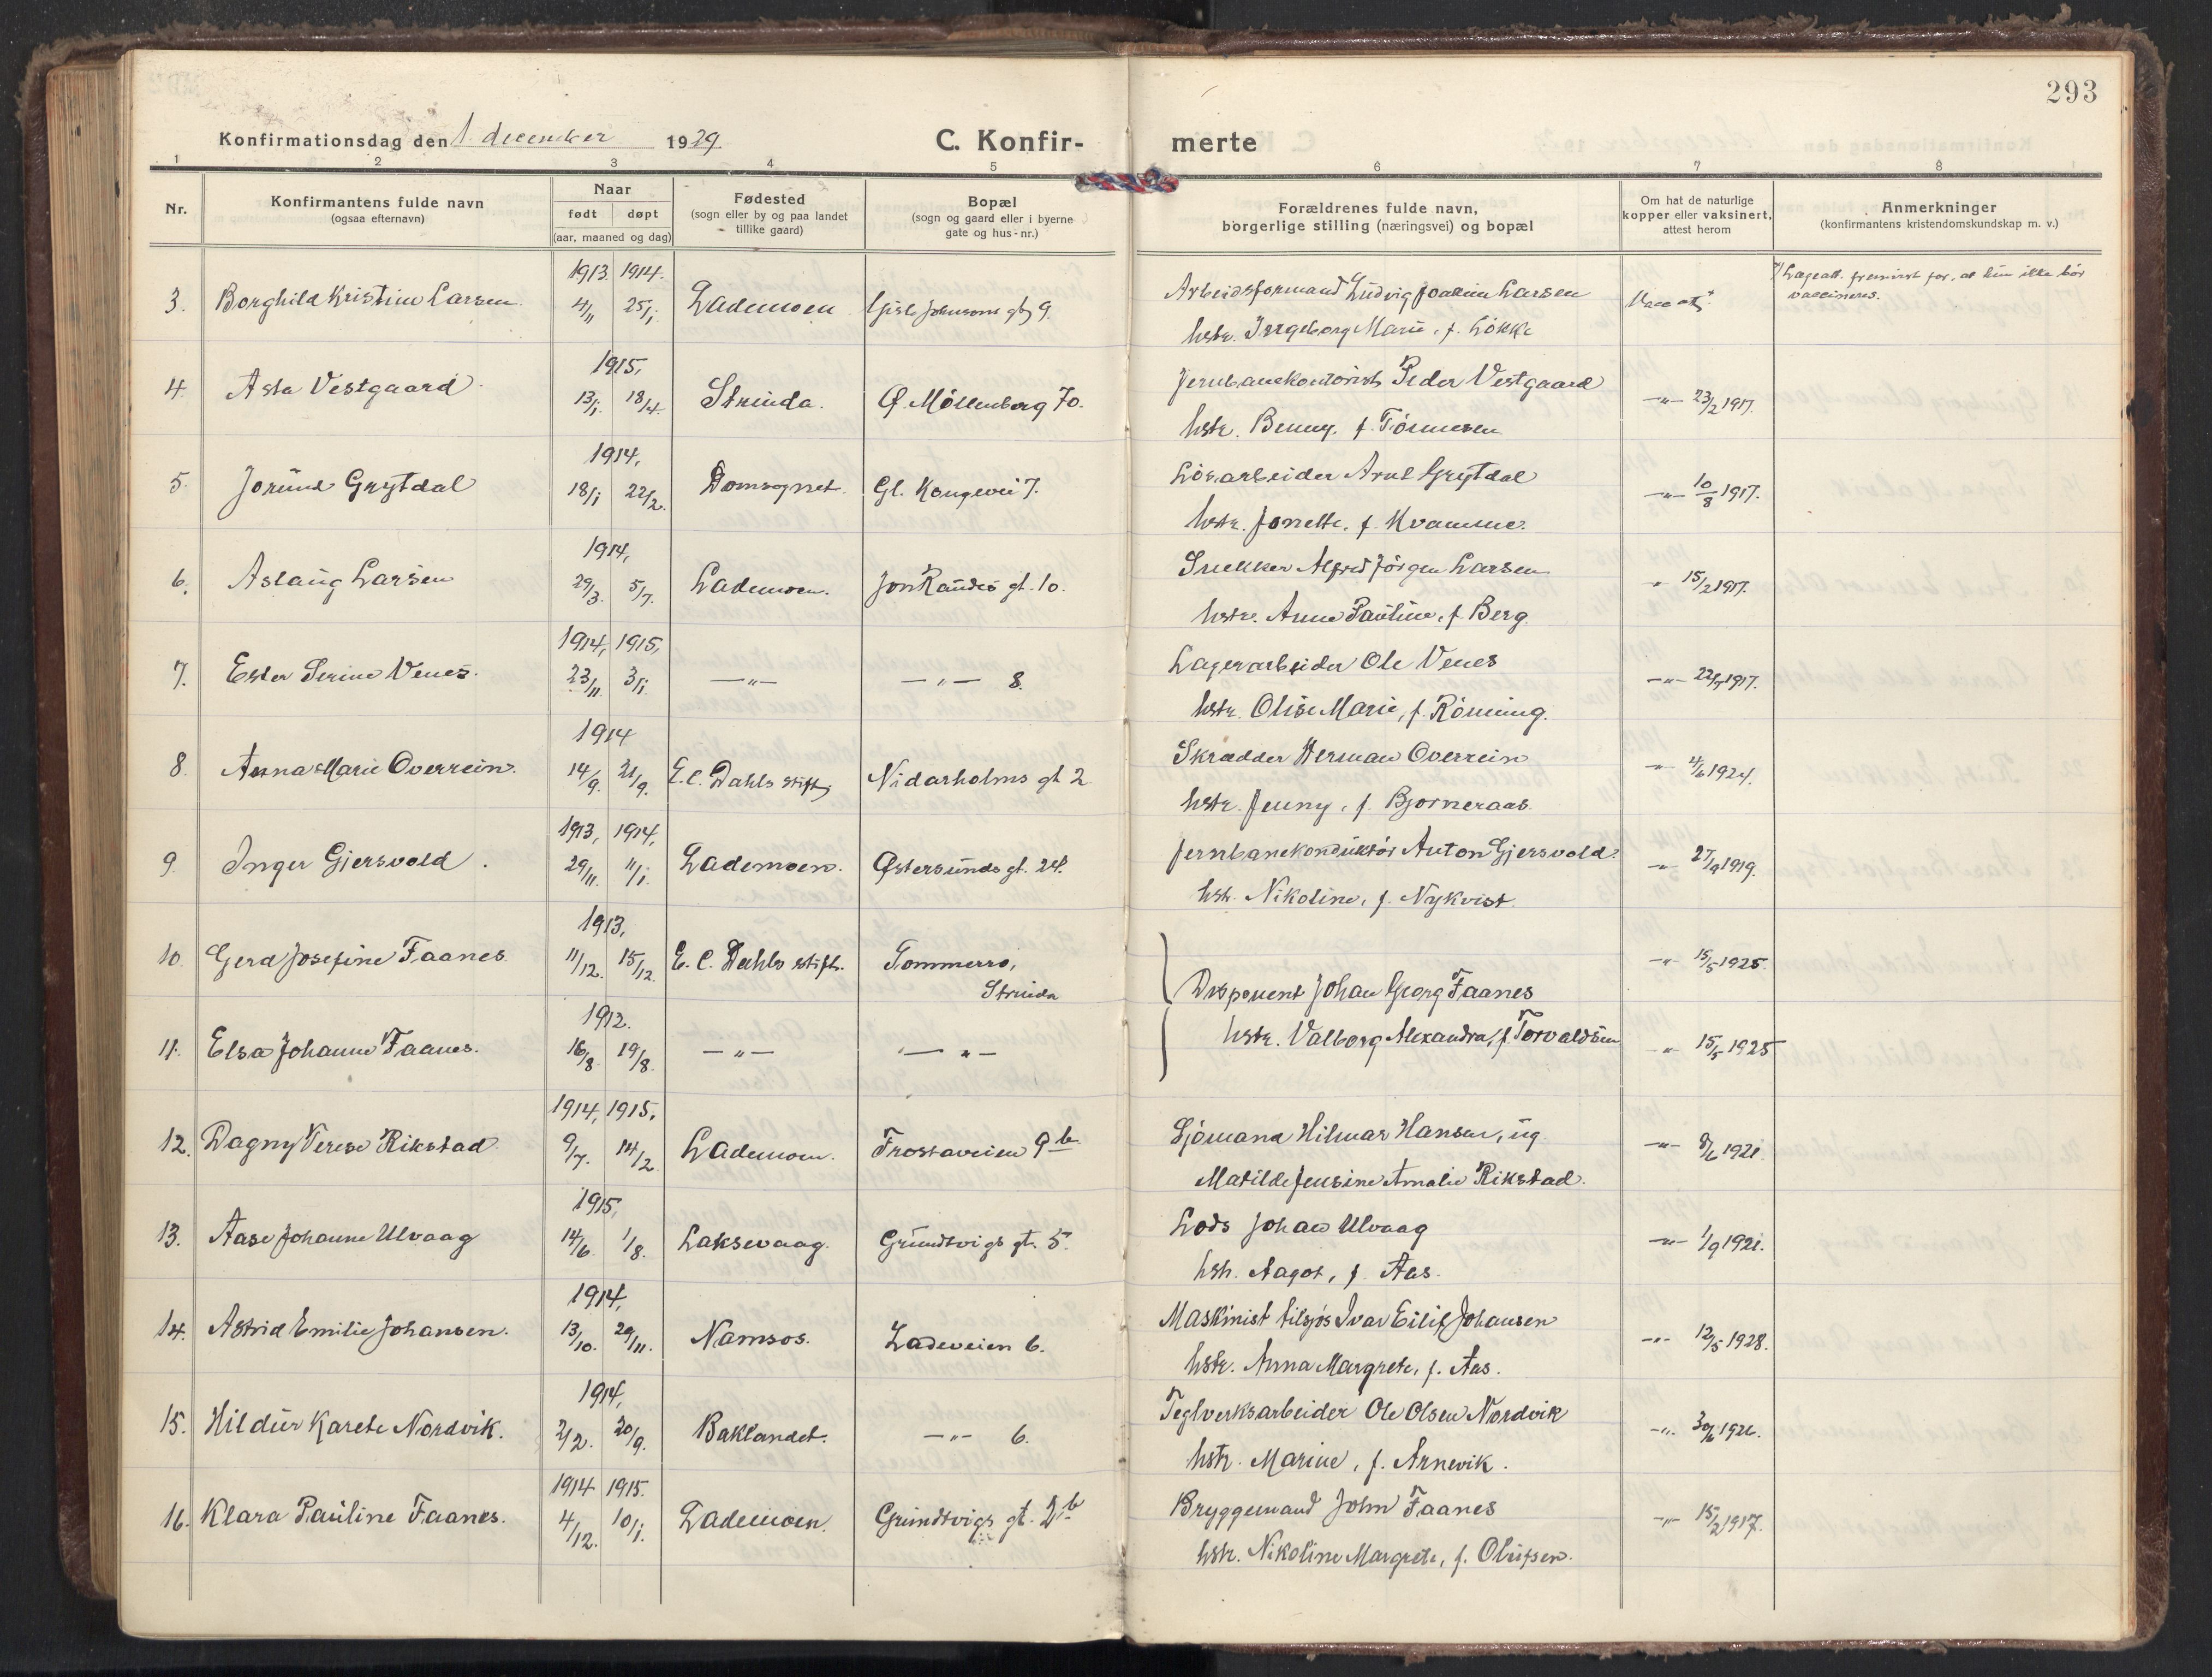 293
Konfirmationsdag den 1. december 1929.
C. Konfir- merte
1 2 3 4 5 6 7 8
Nr.
Konfirmantens fulde navn
(ogsaa efternavn)
Naar
født døpt
(aar, maaned og dag)
Fødested
(sogn eller by og paa landet
tillike gaard)
Bopæl
(sogn og gaard eller i byerne
gate og hus-nr.)
Forældrenes fulde navn,
borgerlige stilling (næringsvei) og bopæl
Om hat de naturlige
kopper eller vaksinert,
attest herom
Anmerkninger
(konfirmantens kristendomskundskap m. v.)
1913 1914.
3. Borghild Kristine Larsen 4/11 25/1. Lademoen Gisle Johnsons gt 9. Arbeidsformand Ludvig Joakim Larsen
hstr. Ingeborg Marie, f. Løkke
att. fremvist for, at hun ikke bør
vaccineres.
1915,
4. Asta Vestgaard 13/1. 18/4. Strinda. Ø. Møllenberg 70. Jernbanekontorist Peder Vestgaard —"— 23/2 1917.
hstr. Benny, f. Tønnesen
1914,
5. Jorund Grytdal 18/1 22/2. Domsognet. Gl. Kongevei 7. Løsarbeider Arnt Grytdal —"— 10/8 1917.
hstr. Jonette, f. Kvamme.
1914,
6. Aslaug Larsen 29/3. 5/7. Lademoen. Jon Raudes gt. 10. Snekker Alfred Jørgen Larsen " 15/2 1917.
hstr. Anna Pauline, f. Berg.
1914, 1915,
7. Ester Serine Venes. 23/11. 3/1. —"— —"— 8. Lagerarbeider Ole Venes —"— 1917.
hstr. Olise Marie, f. Rønning.
1914
8. Anna Marie Overrein. 14/9. 21/9. E.C. Dahls stift. Nidarholms gt 2 Skrædder Herman Overrein —"— 4/6 1924.
hstr. Jenny, f. Bjørneraas.
1913, 1914,
9. Inger Gjersvold. 29/11. 11/1. Lademoen. Østersunds gt. 24. Jernbanekonduktør Anton Gjersvold. —"— 27/9 1919.
hstr. Nikoline, f. Nykvist.
1913,
10. Gerd Josefine Faanes. 11/12. 15/12. E. C. Dahls stift. Tommerro, —"— 15/5 1925.
Strinda
Disponent Johan Georg Faanes
1912.
hstr. Valborg Alexandra, f. Torvaldsen
11. Elsa Johanne Faanes. 16/8. 19/8. —"— —"— " 15/5 1925
1914, 1915,
12. Dagny Verese Rikstad. 9/7. 14/2. Lademoen. Frostaveien 9b Sjømand Hilmar Hansen, ug. —"— 8/6 1921.
Matilde Jensine Amalie Rikstad.
1915,
13. Aase Johanne Ulvaag 14/6. 1/8. Laksevaag. Grundtvigs gt. 5. Lods Johan Ulvaag —"— 1/9 1921.
hstr. Aagot, f. Aas.
1914,
14. Astrid Emilie Johansen. 13/10. 29/11. Namsos. Ladeveien 6. Maskinist tilsjøs Ivar Eilif Johansen —"— 12/5 1928.
hstr. Anna Margrete, f. Aas.
1914,
15. Hildur Karete Nordvik. 2/2. 20/9. Baklandet. —"— 6. Teglverksarbeider Ole Olsen Nordvik —"— 30/6 1926.
hstr. Marine, f. Arnevik.
1914 1915.
16. Klara Pauline Faanes. 4/12. 10/1. Lademoen. Grundtvigs gt. 2b Bryggemand John Faanes —"— 15/2 1917.
hstr. Nikoline Margrete, f. Olufsen.